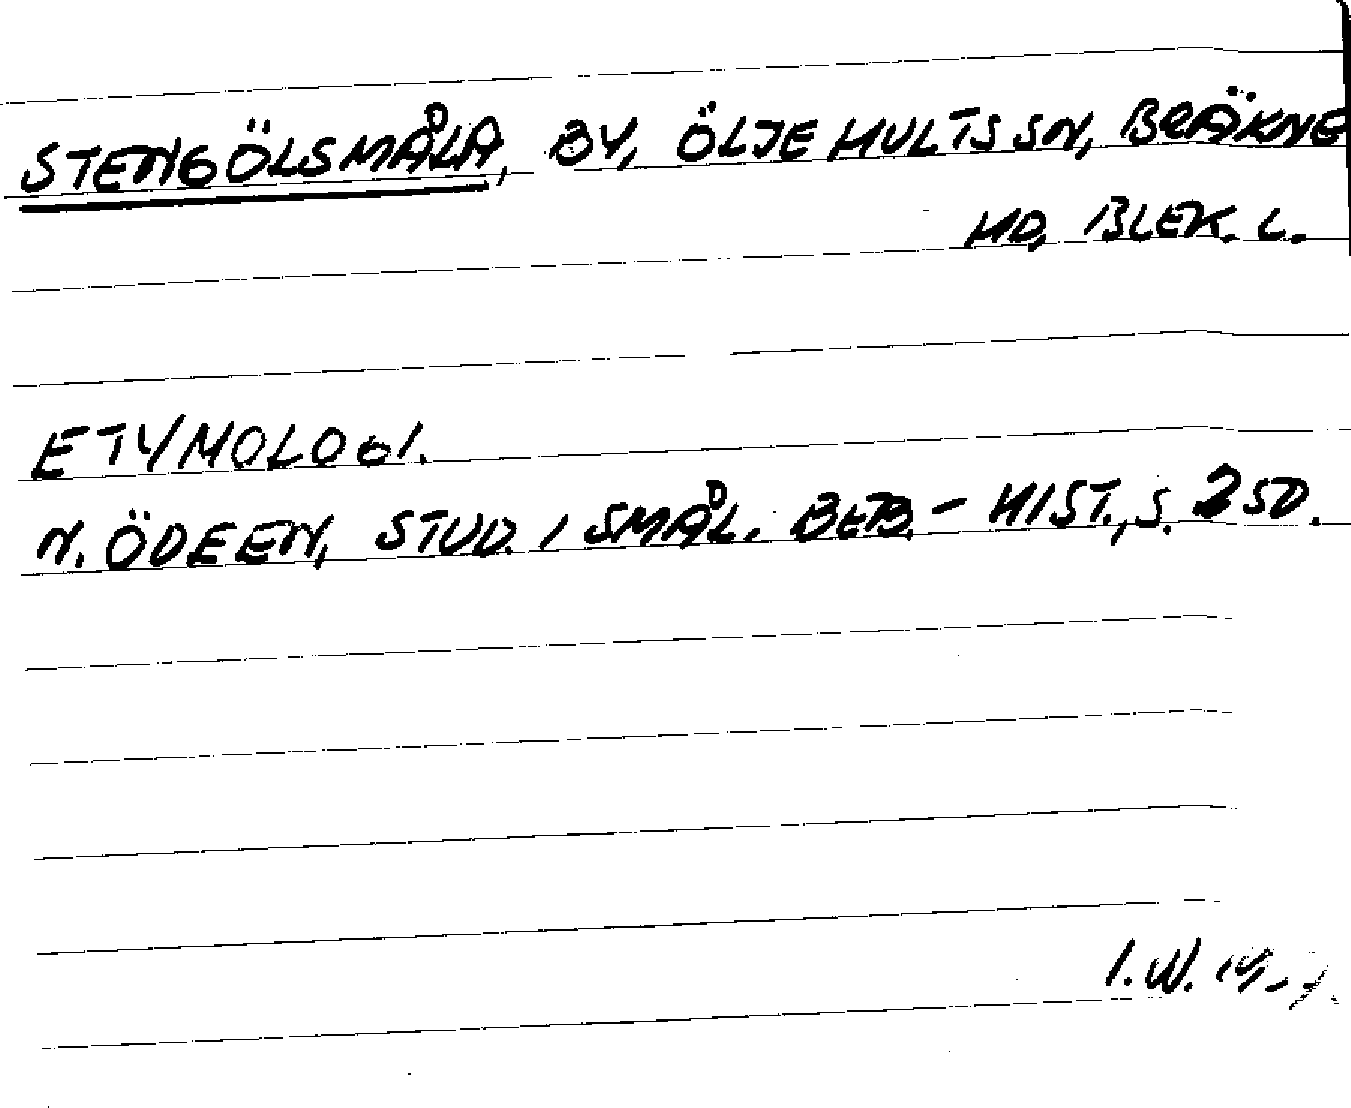 STENGÖLSMÅLA, BY, ÖLJEHULTS SN, BRÄKNE
HD, BLEK. L.
ETYMOLOGI.
N. ÖDEEN, STUD. I SMÅL. BEB.- HIST., S. 250.
I.W.